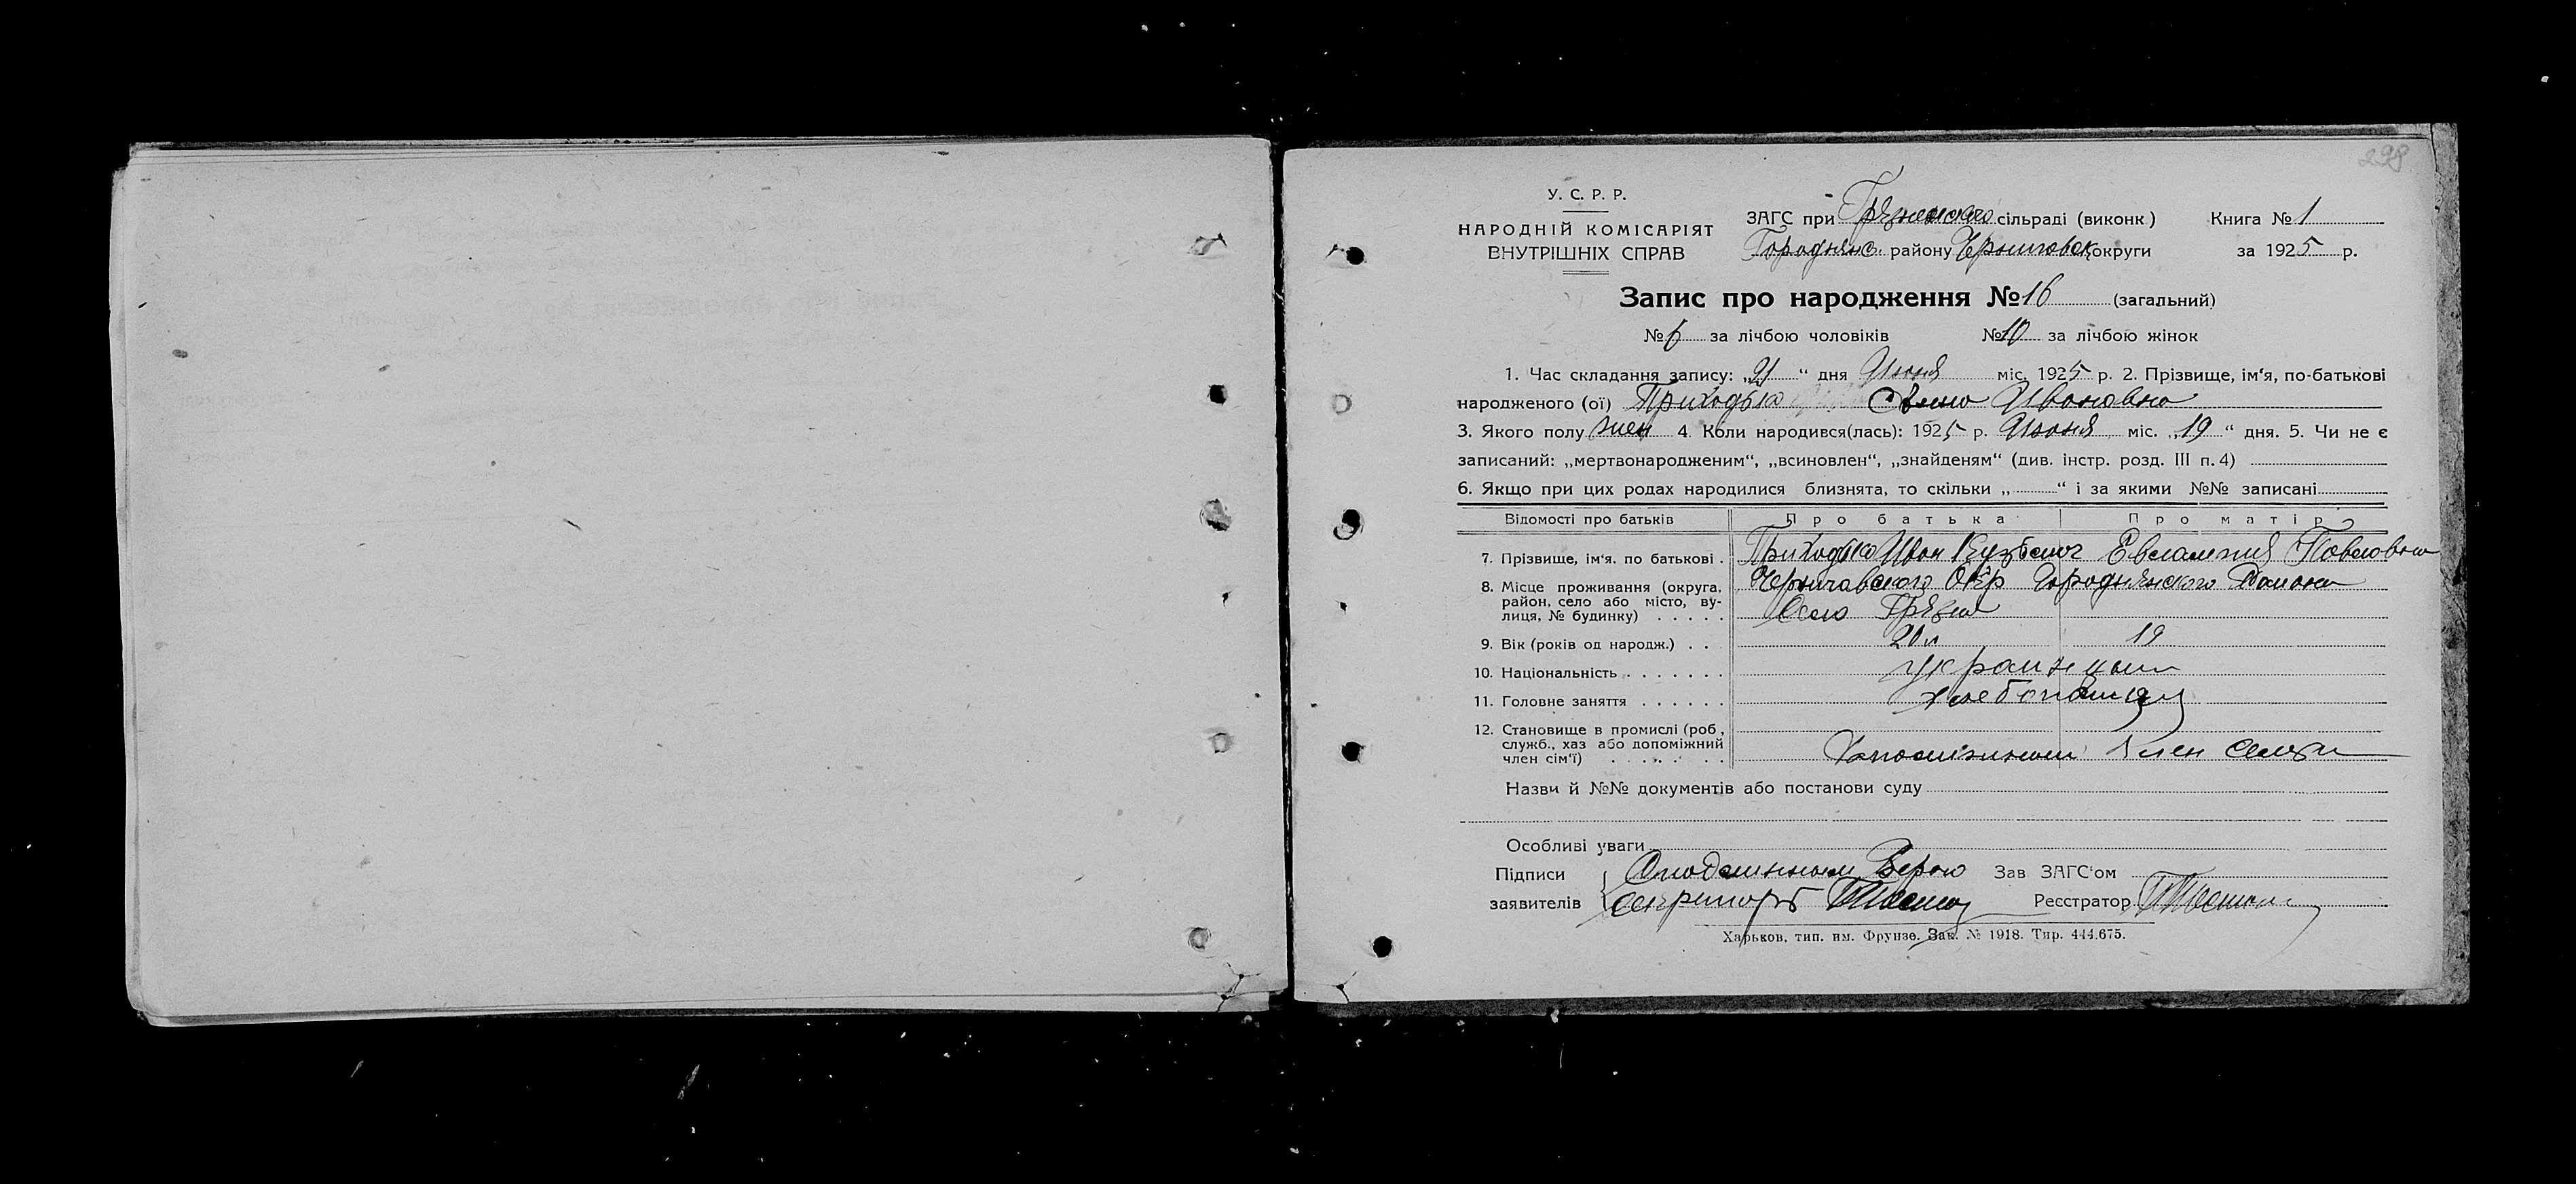 298
У. С. Р. Р.
НАРОДНІЙ КОМІСАРІЯТ
ВНУТРІШНІХ СПРАВ
ЗАГС при Грязненского сільраді (виконк) Книга № 1
Городнянс. району Черниговск округи за 1925 р.
Запис про народження № 16 (загальний)
№ 6 за лічбою чоловіків № 10 за лічбою жінок
1. Час складання запису: „21“ дня Июня міс. 1925 р. 2. Прізвище, ім‘я, по-батькові
народженого (ої) Приходько Ивановна
3. Якого полу жен 4. Коли народився(лась): 1925 р. Июня міс. „19“ дня. 5. Чи не є
записаний: „мертвонародженим“, „всиновлен“, „знайденям“ (див. інстр. розд. III п. 4)
6. Якщо при цих родах народилися близнята, то скільки „ “ і за якими №№ записані
Відомості про батьків Про батька Про матір
7. Прізвище, ім‘я. по батькові . Приходько Иван Кузьмич Евлампия Павловна
8. Місце проживання (округа, Черниговского Окр Городнянского Района
район, село або місто, ву- Село Грязна
лиця, № будинку) . . . . .
9. Вік (років од народж.) . . 20 л 19
10. Національність . . . . . . . украинцы
11. Головне заняття . . . . . . хлебопашцы
12. Становище в промислі (роб,
служб., хаз або допоміжний
член сім‘ї) . . . . . . член семьи
Назви й №№ документів або постанови суду
Особливі уваги
Підписи Зав ЗАГС‘ом
заявителів секретарь Реєстратор
Харьков, тип. им. Фрунзе. Зак. № 1918. Тир. 444.675.